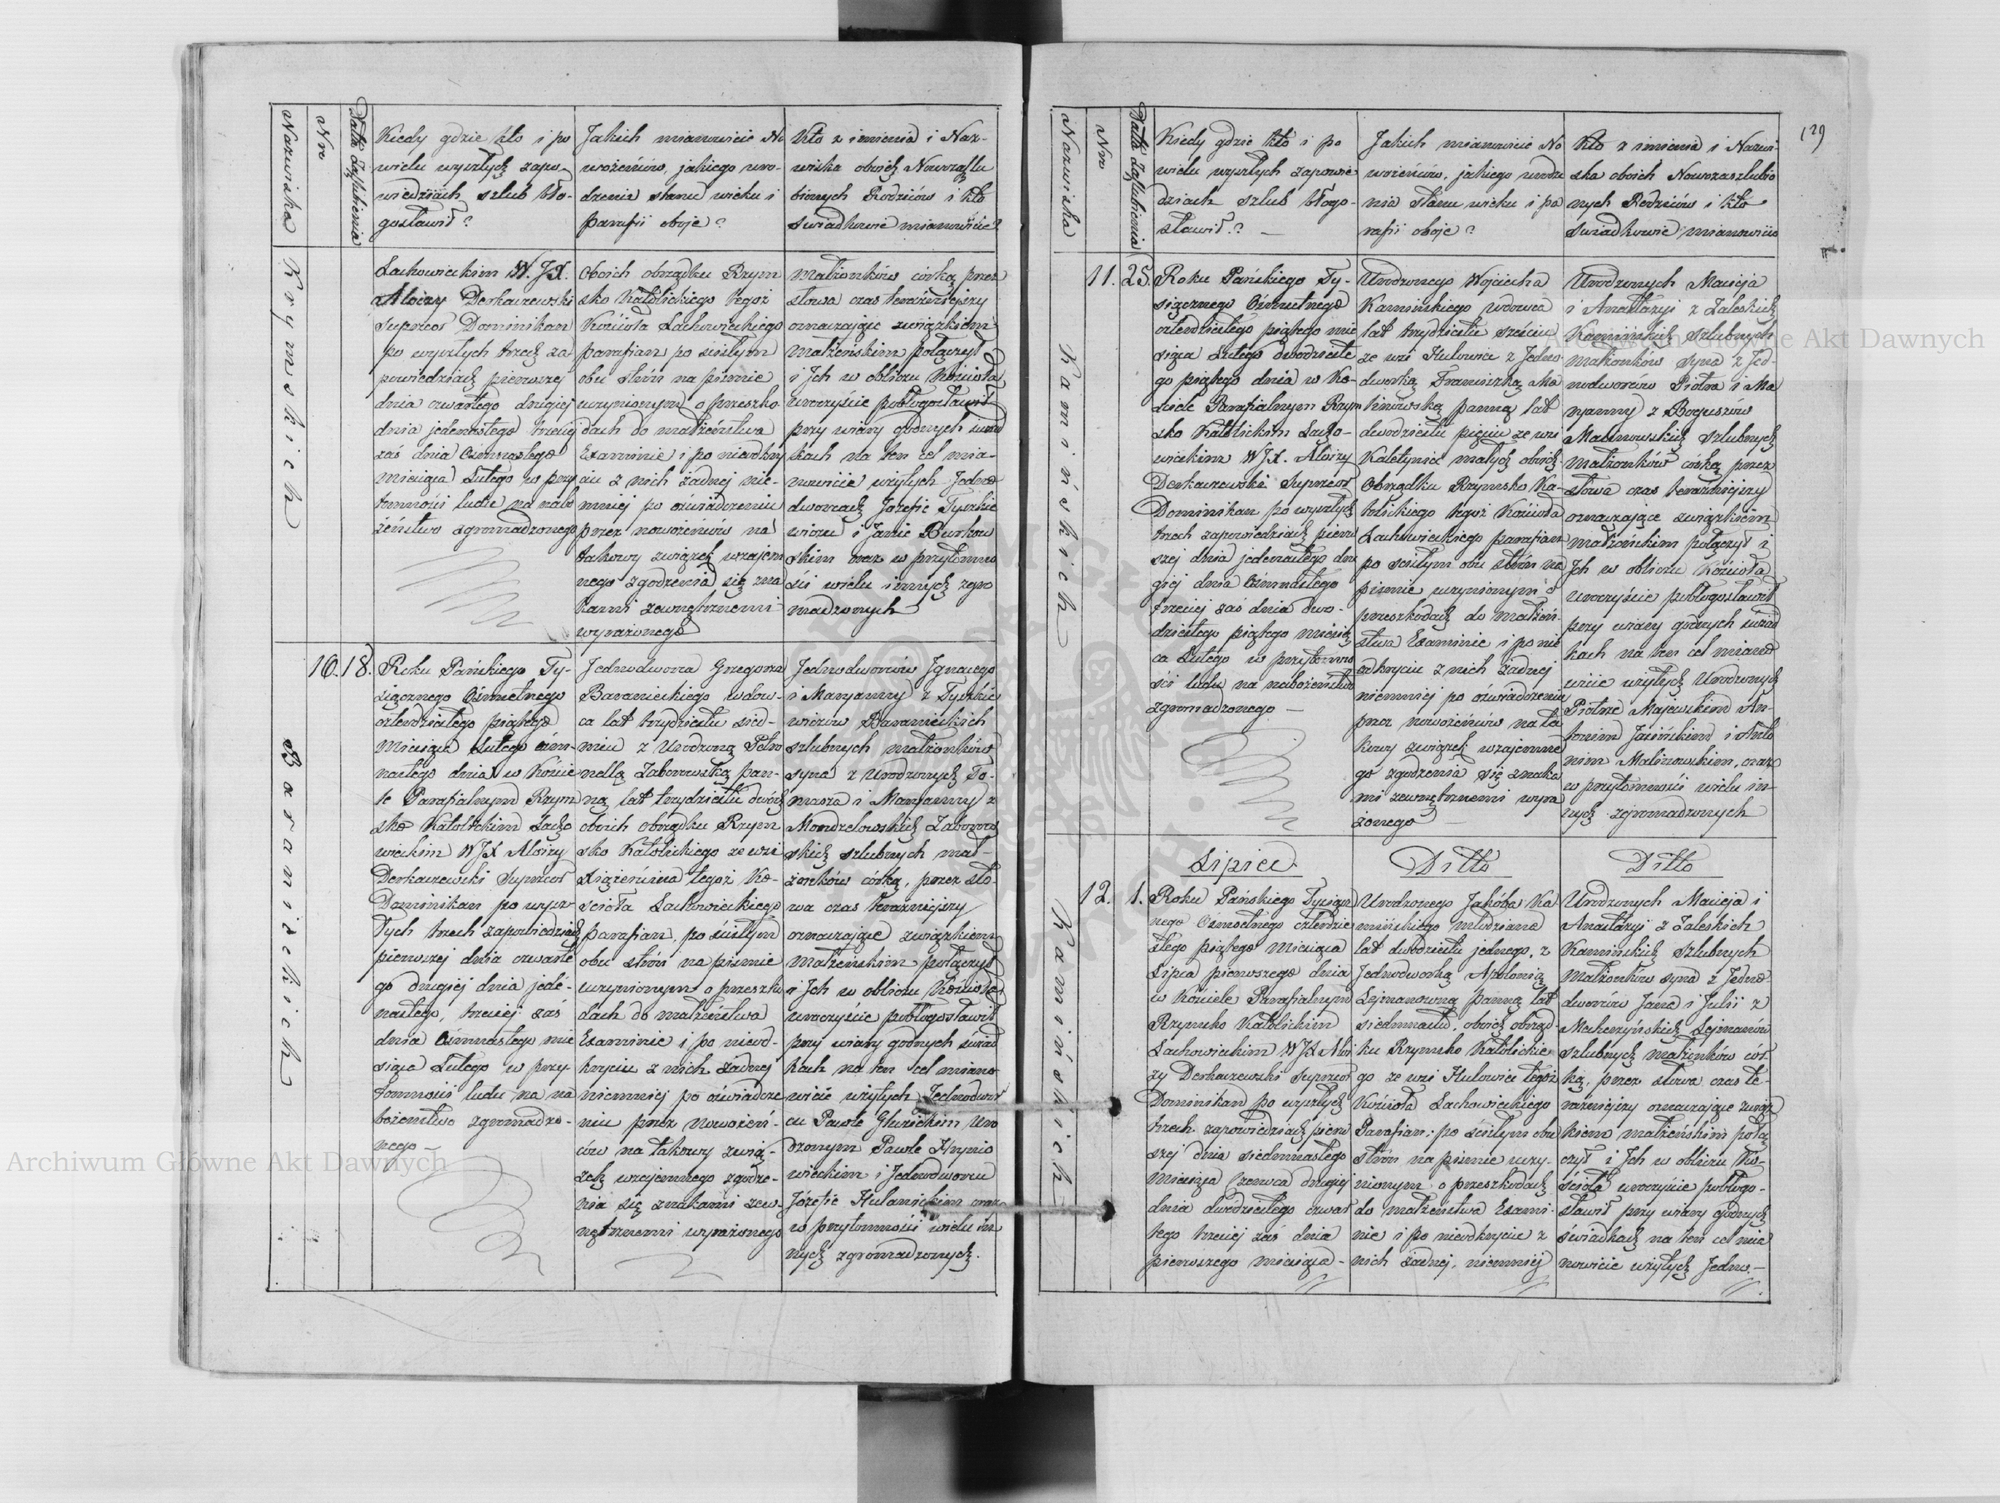 Nazwiska
Nro
Data Zaślubienia
Kiedy gdzie kto i po
wielu wyszłych zapo-
wiedziach szlub bło-
gosławił?
Jakich mianowicie No
wożeńców, jakiego uro-
dzenia stanu wieku i
parafii oboje?
Kto z imienia i Naz-
wiska oboich Nowozaślu
bionych Rodziców i kto
świadkowie mianowicie?
Krymskich
Lachowieckim W. JX.
Alojzy Derkaczewski
Superior Dominikan
po wyszłych trzech za
powiedziach pierwszej
dnia czwartego drugiej
dnia jedenastego trzeciej
zaś dnia Ośmnastego
Miesiąca Lutego w przy
tomności ludu na nabo
żeństwo zgromadzonego
Oboich obrządku Rzym
sko Katolickiego tegoż
Kościoła Lachowieckiego
parafian po ścisłym
obu stron na piśmie
uczynionym o przeszko
dach do małżeństwa
Examinie i po nieodkry
ciu z nich żadnej nie-
mniej po oświadczeniu
przez nowożeńców na
takowy związek wzajem
nego zgodzenia się zna
kami zewnętrznemi
wyrażonego
Małżonków córką przez
słowa czas teraźniejszy
oznaczające związkiem
Małżeńskim połączył
i Ich w obliczu Kościoła
uroczyście pobłogosławił
przy wiary godnych świad
kach na ten cel mia-
nowicie użytych Jedno
dworcach Józefie Tyszkie
wiczu i Janie Burkow
skim oraz w przytomno
ści wielu innych zgro
madzonych
Baranieckich
10. 18.
Roku Pańskiego Ty-
siącznego Ośmsetnego
czterdziestego piątego
Miesiąca Lutego ośm-
nastego dnia w Koście
le Parafialnym Rzym
sko Katolickim Lacho
wieckim WJX Alojzy
Derkaczewski Superior
Dominikan po wysz-
łych trzech zapowiedziach
pierwszej dnia czwarte
go drugiej dnia jede-
nastego, trzeciej zaś
dnia Ośmnastego mie
siąca Lutego w przy
tomności ludu na na
bożeństwo zgromadzo-
nego —
Jednodworca Grzegorza
Baranieckiego wdow-
ca lat trzydziestu sied-
miu z Urodzoną Petro
nellą Zaborowską pan-
ną lat trzydziestu dwóch
oboich obrządku Rzym
sko Katolickiego ze wsi
tegoż Ko-
ścioła Lachowieckiego
parafian, po ścisłym
obu stron na piśmie
uczynionym o przeszko
dach do małżeństwa
Examinie i po nieod-
kryciu z nich żadnej
niemniej po oświadcze
niu przez Nowożeń-
ców na takowy zwią-
zek wzajemnego zgodze-
nia się znakami zew-
nętrznemi wyrażonego
Jednodworców Ignacego
i Maryanny z Tyszkie
wiczów Baranieckich
szlubnych małżonków
syna z Urodzonych To-
masza i Maryanny z
Mondzelowskich Zaborow
skich szlubnych mał-
żonków córką, przez sło-
wa czas teraźniejszy
oznaczające związkiem
Małżeńskim połączył
i Ich w obliczu Kościoła
uroczyście pobłogosławił
przy wiary godnych świad
kach na ten cel miano
wicie użytych Jednodwor
cu Pawle Uro
dzonym Pawle Hrynie
wieckim i Jednodworcu
Józefie Hulanickim oraz
w przytomności wielu in
nych zgromadzonych.
129
Nazwiska
Nro
Data Zaślubienia
Kiedy gdzie kto i po
wielu wyszłych zapowie
dziach szlub błogo-
sławił? —
Jakich mianowicie No
wożeńców, jakiego urodze
nia stanu wieku i pa
rafii oboje?
Kto z imienia i Nazwi-
ska oboich Nowozaszlubio
nych Rodziców i kto
świadkowie mianowicie
Kamińskich
11. 25.
Roku Pańskiego Ty-
siącznego Ośmsetnego
czterdziestego piątego mie
siąca Lutego dwudzieste
go piątego dnia w Ko-
ściele Parafialnym Rzym
sko Katolickim Lacho-
wieckim WJX. Alojzy
Derkaczewski Superior
Dominikan po wyszłych
trzech zapowiedziach pierw
szej dnia jedenastego dru
giej dnia Ośmnastego
trzeciej zaś dnia dwu-
dziestego piątego miesią
ca Lutego w przytomno
ści ludu na nabożeństwo
zgromadzonego —
Urodzonego Wojciecha
Kamińskiego wdowca
lat trzydziestu sześciu
ze wsi Hulowiec z Jedno
dworką Franciszką Ma
linowską panną lat
dwudziestu pięciu ze wsi
Kaletyniec małych oboich
Obrządku Rzymsko Ka-
tolickiego tegoż Kościoła
Lachowieckiego parafian
po ścisłym obu stron na
piśmie uczynionym o
przeszkodach do małżeń
stwa Examinie i po nie
odkryciu z nich żadnej
niemniej po oświadczeniu
przez nowożeńców na ta
kowy związek wzajemne
go zgodzenia się znaka
mi zewnętrznemi wyra
żonego —
Urodzonych Macieja
i Anastazyi z Zaleskich
Kamińskich szlubnych
małżonków syna z Jed-
nodworców Piotra i Ma
ryanny z Boguszów
Malinowskich szlubnych
małżonków córką przez
słowa czas teraźniejszy
oznaczające związkiem
Małżeńskim połączył i
Ich w obliczu Kościoła
uroczyście pobłogosławił
przy wiary godnych świad
kach na ten cel miano
wicie użytych Urodzonych
Piotrze Majewskim An-
tonim Jasińskim i Anto
nim Malinowskim, oraz
w przytomności wielu in-
nych zgromadzonych
Lipiec.
Ditto
Ditto
Kamińskich
12. 1.
Roku Pańskiego Tysiącz
nego Ośmsetnego czterdzie
stego piątego Miesiąca
Lipca pierwszego dnia
w Kościele Parafialnym
Rzymsko Katolickim
Lachowieckim WJX Aloi
zy Derkaczewski Superior
Dominikan po wyszłych
trzech zapowiedziach pierw
szej dnia siedmnastego
Miesiąca Czerwca drugiej
dnia dwudziestego czwar
tego trzeciej zaś dnia
pierwszego miesiąca -
Urodzonego Jakóba Ka
mińskiego młodziana
lat dwudziestu jednego, z
Jednodworką Apolonią
Lejmanowną panną lat
siedmnastu, oboich obrząd-
ku Rzymsko Katolickie
go ze wsi Hulowiec tegoż
Kościoła Lachowieckiego
Parafian; po ścisłym obu
stron na piśmie uczy-
nionym o przeszkodach
do małżeństwa Exami-
nie i po nieodkryciu z
nich żadnej, niemniej
Urodzonych Macieja i
Anastazyi z Zaleskich
Kamińskich szlubnych
Małżonków syna z Jedno
dworców Jana i Julii z
Lejmanów
szlubnych małżonków cór
ką, przez słowa czas te-
raźniejszy oznaczające związ
kiem małżeńskim połą
czył i Ich w obliczu Ko-
ścioła uroczyście pobłogo-
sławił przy wiary godnych
świadkach na ten cel mia
nowicie użytych Jedno-
Archiwum Główne Akt Dawnych
Archiwum Główne Akt Dawnych